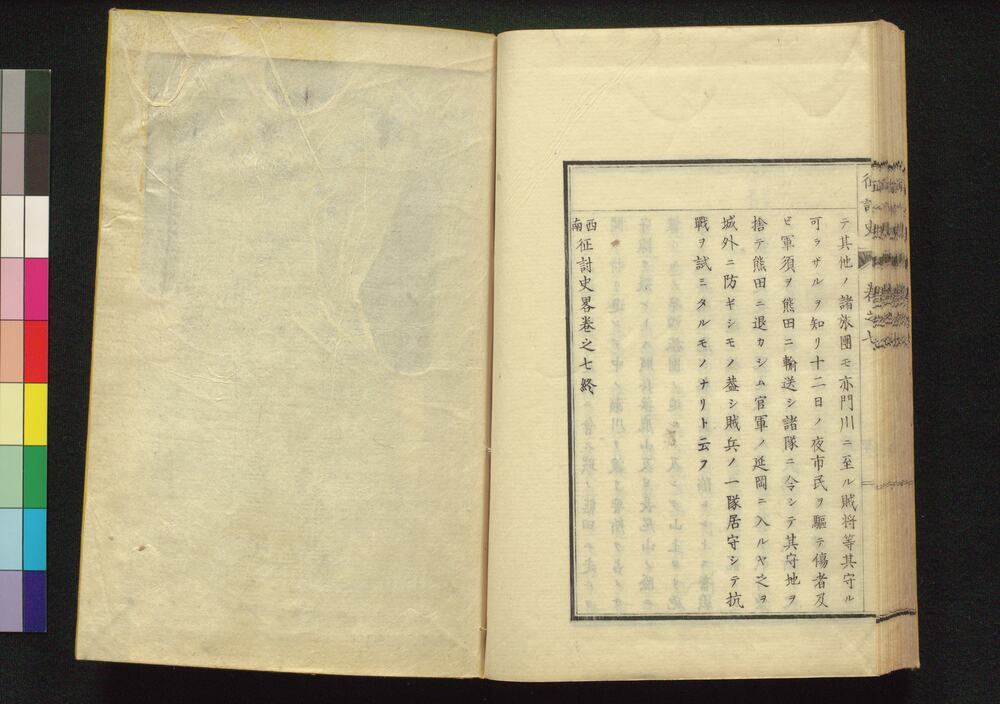 テ其他ノ諸旅團モ亦門川ニ至ル賊将等其守ル
可ラザルヲ知リ十二日ノ夜市民ヲ驅テ傷者及
ビ軍須ヲ熊田ニ輸送シ諸隊ニ令シテ其守地ヲ
捨テ熊田ニ退カシム官軍ノ延岡ニ入ルヤ之ヲ
城外ニ防ギシモノ蓋シ賊兵ノ一隊居守シテ抗
戰ヲ試ミタルモノナリト云フ
西南征討史畧卷之七終